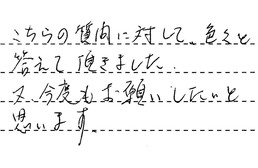 こちらの質問に対して、色々と
答えて頂きました.
又、今度もお願いしたいと
思います。